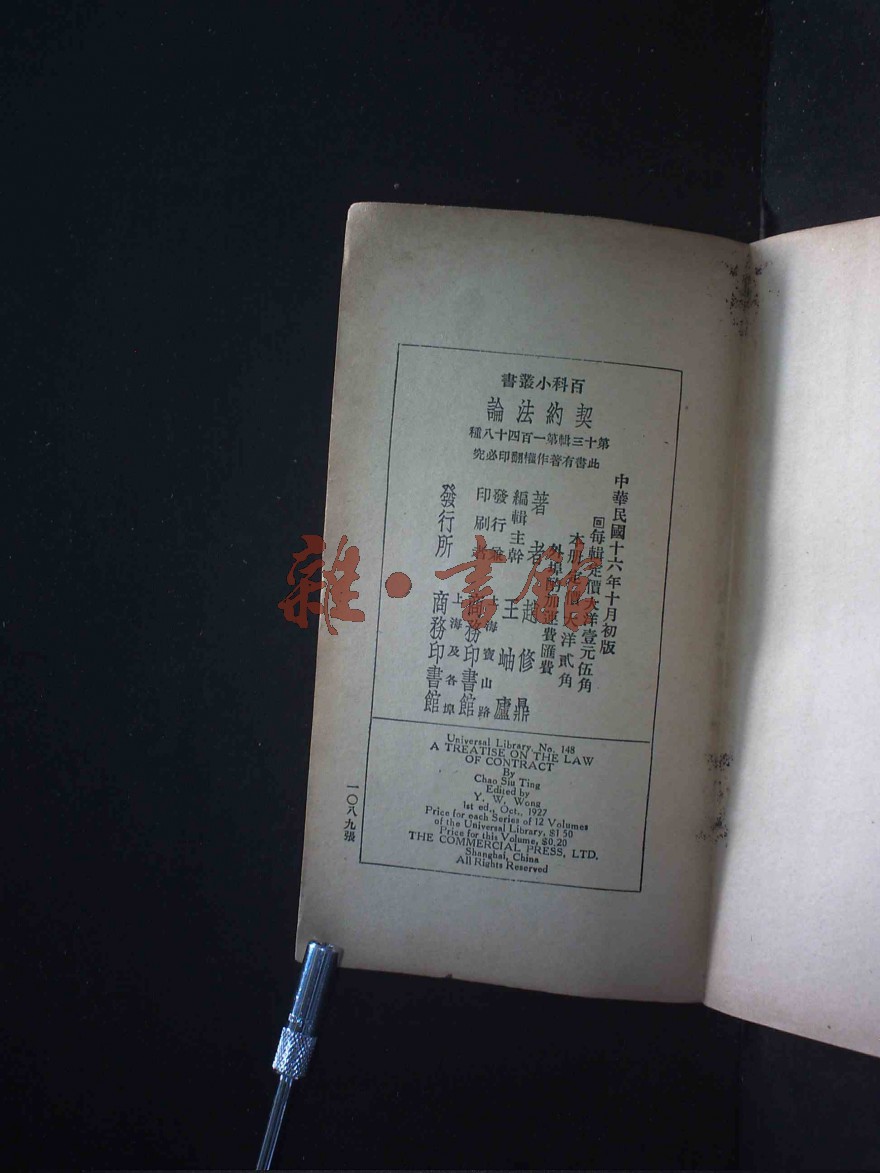 百科小叢書
契約法論
第十三輯第一百四十八種
此書有著作權翻印必究
中華民國十六年十月初版
回每輯定價大洋壹元伍角
本冊定價大洋貳角
外埠酌加運費匯費
著者 趙修鼎
編輯主幹 王岫廬
發行兼印刷者 上海寶山路 商務印書館
發行所 上海及各埠 商務印書館
Universal Library, No. 148
A TREATISE ON THE LAW
OF CONTRACT
By
Chao Siu Ting
Edited by
Y. W. Wong
1st ed., Oct., 1927
Price for each Series of 12 Volumes
of the Universal Library, $1.50
Price for this Volume, $0.20
THE COMMERCIAL PRESS, LTD.
Shanghai, China
All Rights Reserved
一〇八九張
雜·書館